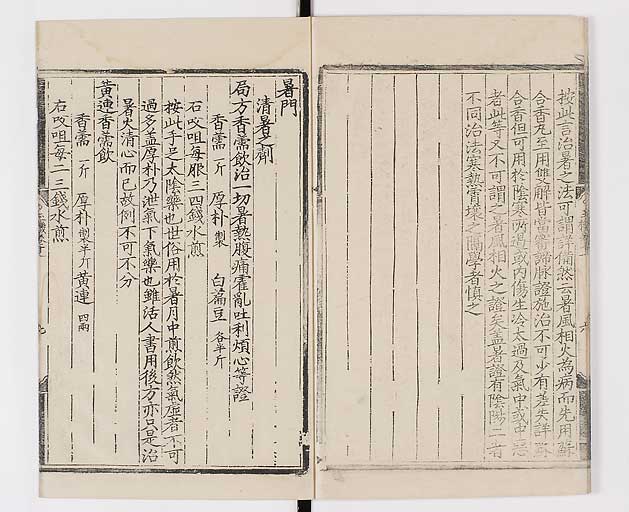 按此言治暑之法可謂詳備然云暑風相火為病而先用蘇
合香丸至用雙解皆當審諦脉證施治不可少有差失詳蘇
合香但可用於陰寒所遏或內傷生冷太過及氣中或中惡
者此等又不可謂之暑風相火之證矣盖暑證有陰陽二者
不同治法寒熱霄壤之隔學者慎之
暑門
清暑之劑
局方香薷飲治一切暑熱腹痛霍亂吐利煩心等證
香薷一斤 厚朴製 白萹豆各半斤
右㕮咀每服三四錢水煎
按此手足太陰藥也世俗用於暑月中煎飲然氣虛者不可
過多盖厚朴乃泄氣下氣藥也雖活人書用後方亦只是治
暑火清心而已故例不可不分
黃連香薷飲
香薷一斤 厚朴製半斤 黃連四兩
右㕮咀每二三錢水煎